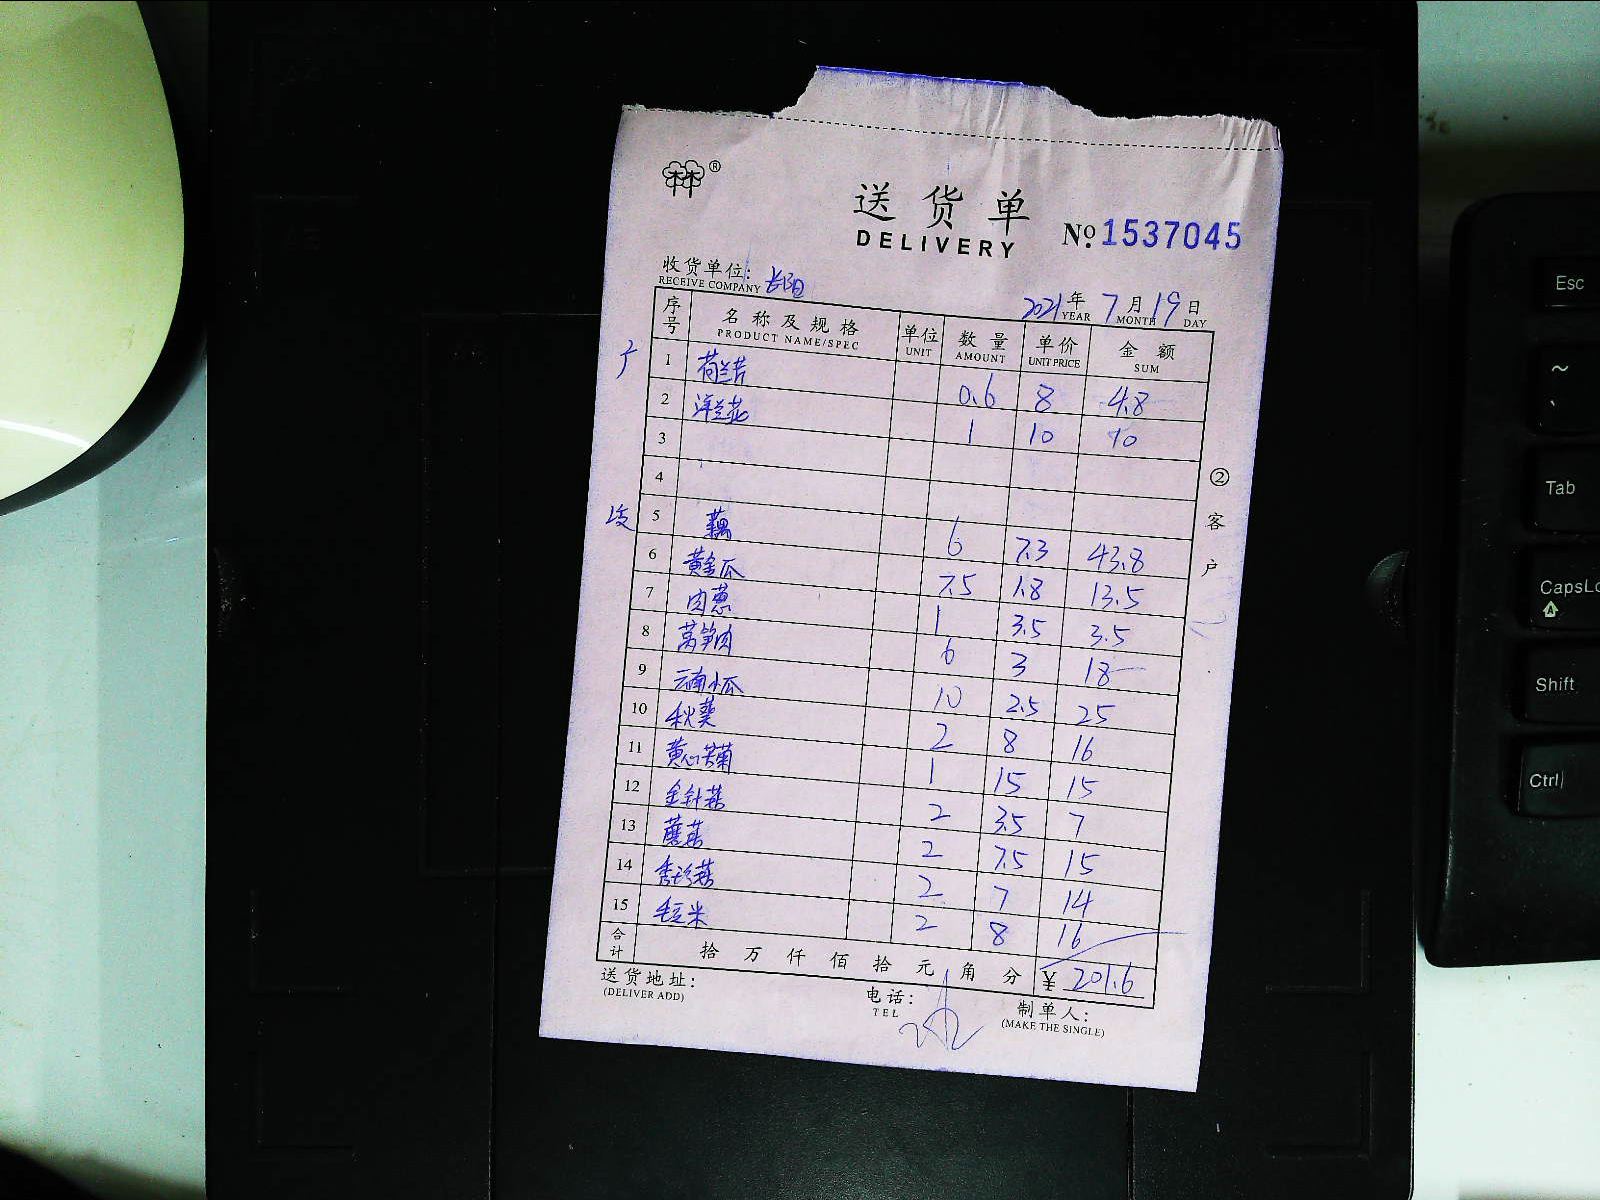 ®
送货单
DELIVERY
№ 1537045
收货单位:
RECEIVE COMPANY
2021年 YEAR 7月 MONTH 19日 DAY
序号 名称及规格 PRODUCT NAME/SPEC 单位 UNIT 数量 AMOUNT 单价 UNIT PRICE 金额 SUM
1 荷兰芹 0.6 8 4.8
2 洋兰花 1 10 10
3
4
5 藕 6 7.3 43.8
6 黄金瓜 7.5 1.8 13.5
7 肉葱 1 3.5 3.5
8 莴笋肉 6 3 18
9 云南小瓜 10 2.5 25
10 秋葵 2 8 16
11 黄心苦菊 1 15 15
12 金针菇 2 3.5 7
13 蘑菇 2 7.5 15
14 秀珍菇 2 7 14
15 毛豆米 2 8 16
合计 拾 万 仟 佰 拾 元 角 分 ¥ 201.6
送货地址:
(DELIVER ADD)
电话:
TEL
制单人:
(MAKE THE SINGLE)
②客户
Esc
~
Tab
CapsLo
A
Shift
Ctrl